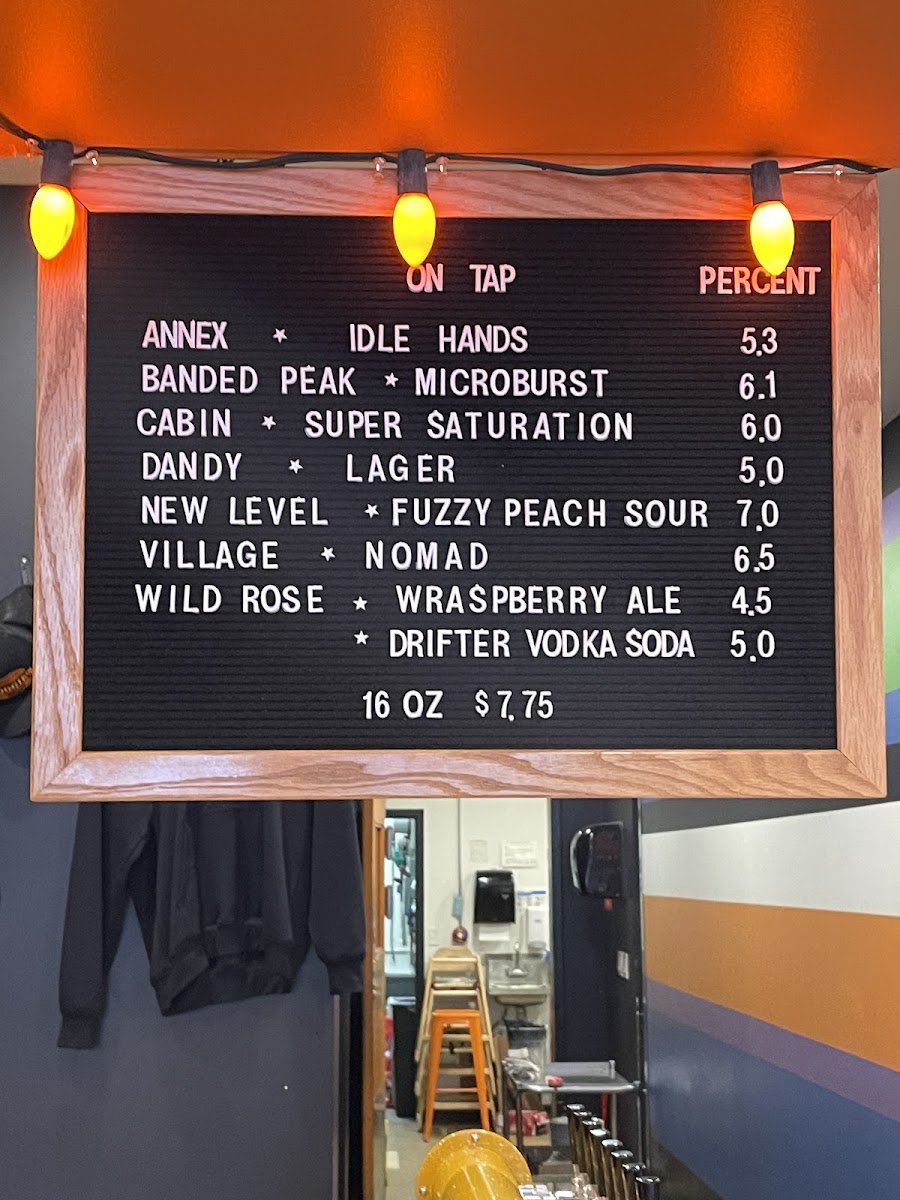 ON TAP PERCENT
ANNEX * IDLE HANDS 5.3
BANDED PEAK * MICROBURST 6.1
CABIN * SUPER SATURATION 6.0
DANDY * LAGER 5.0
NEW LEVEL * FUZZY PEACH SOUR 7.0
VILLAGE * NOMAD 6.5
WILD ROSE * WRASPBERRY ALE 4.5
* DRIFTER VODKA SODA 5.0
16 OZ $7.75